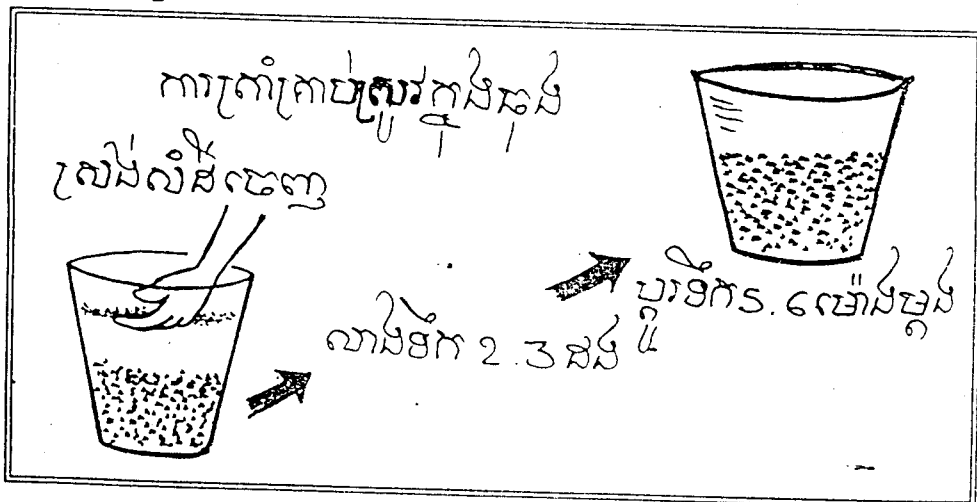 ការត្រាំគ្រាប់ស្រូវក្នុងធុង
ស្រង់សំដីចេញ
លាងទឹក 2.3 ដង
ប្ដូរទឹក 5.6 ម៉ោងម្ដង